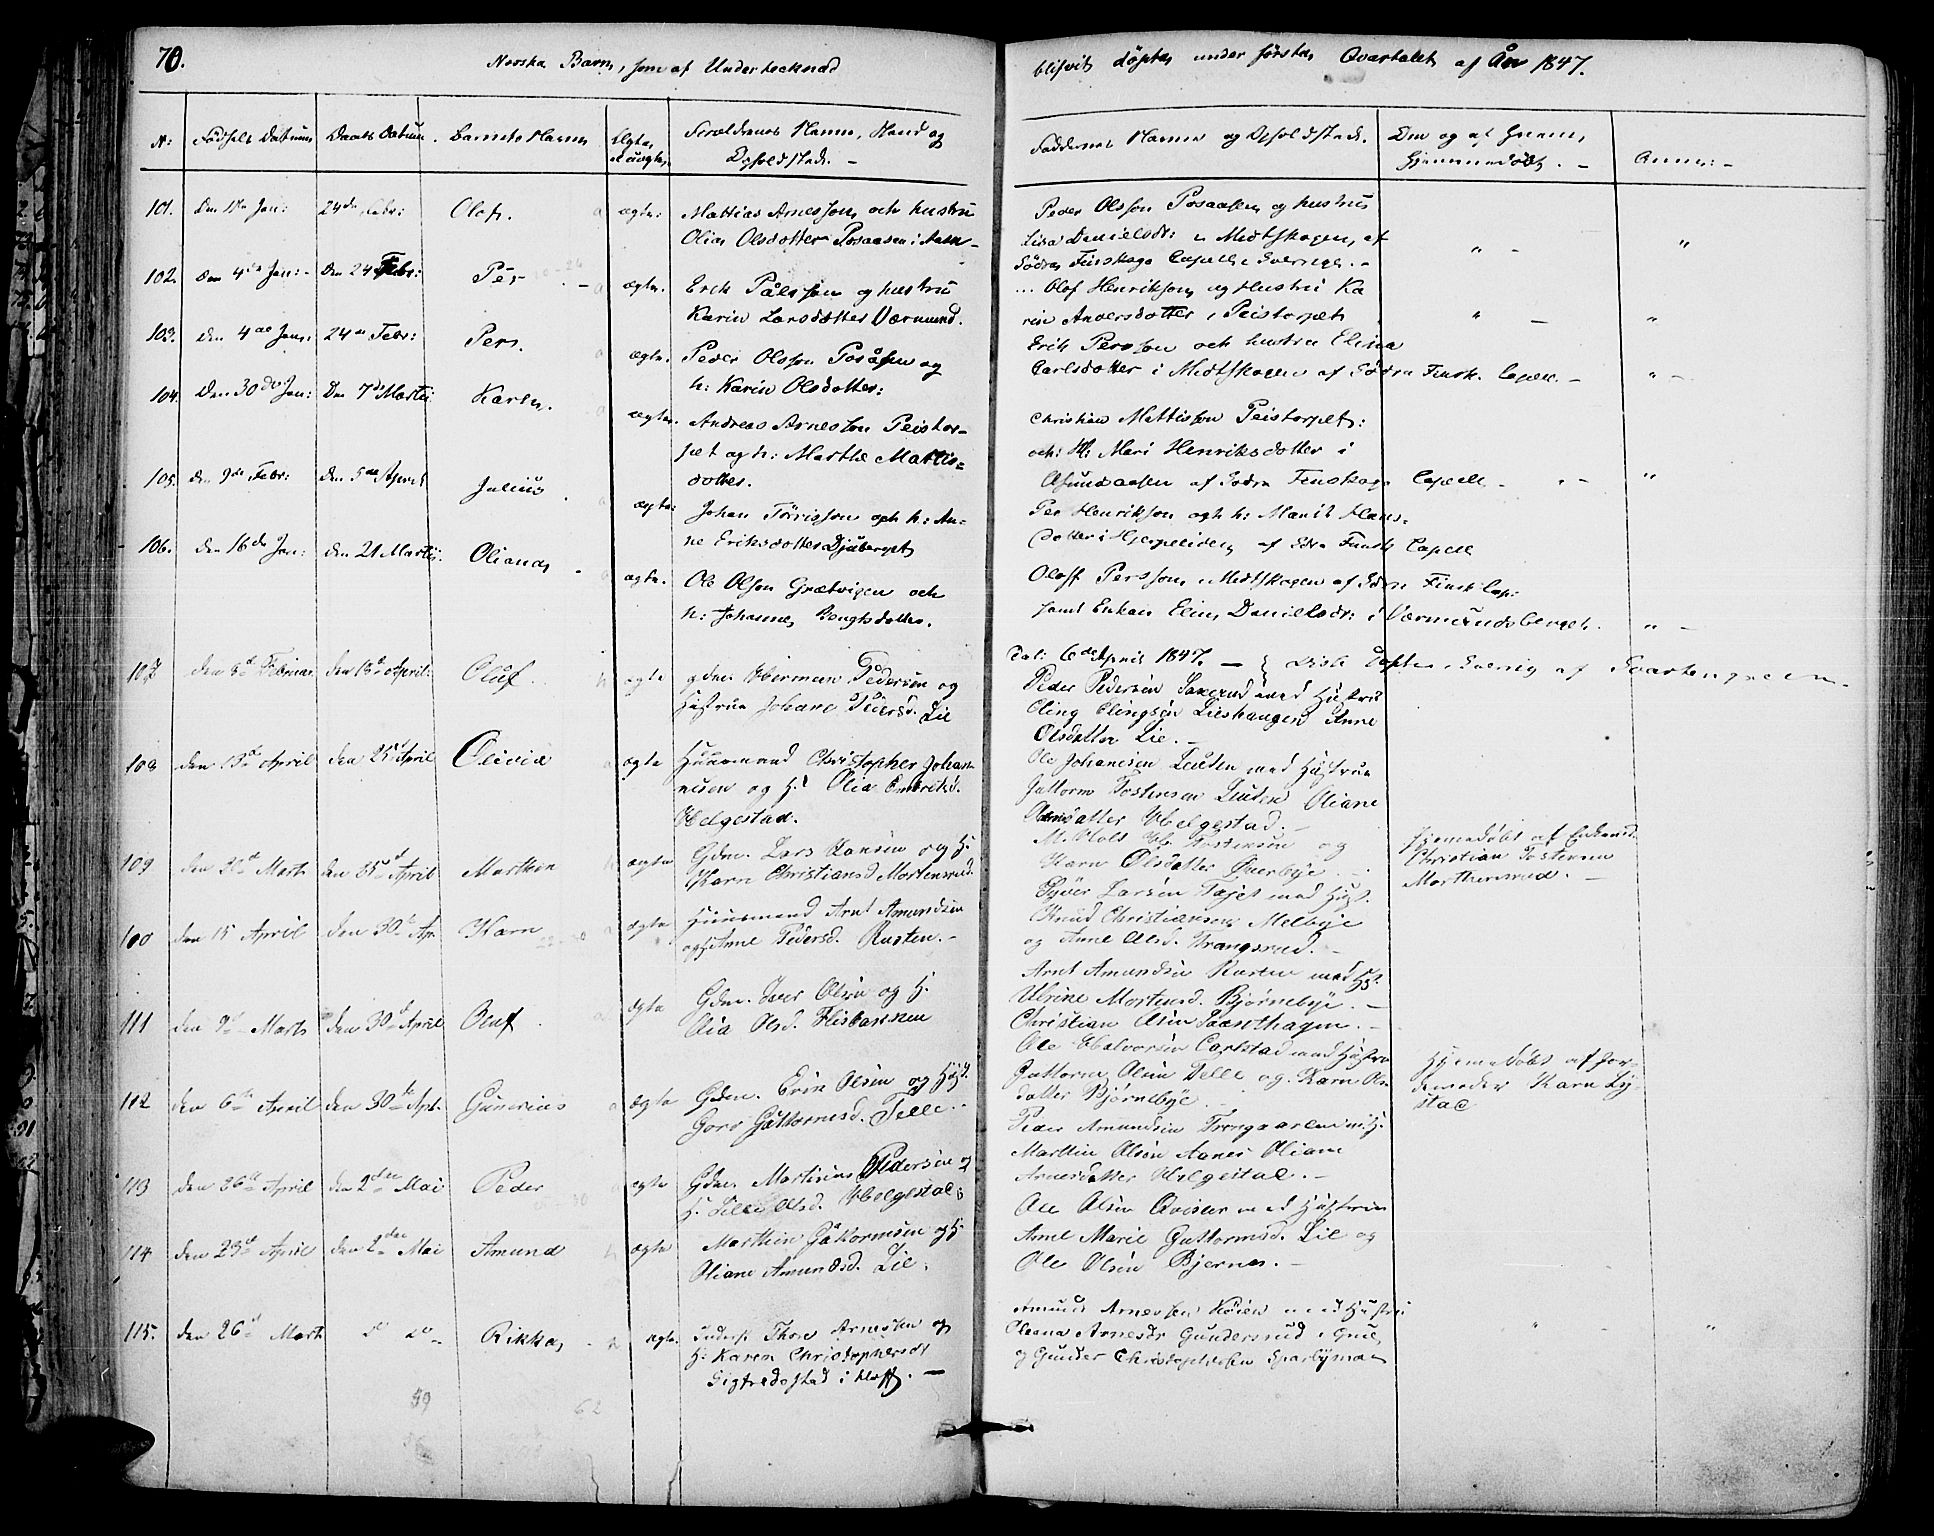 70.
Norska Barn, som af Undertecknad blifvit döpta under första Qvartalet af År 1847.
N: Födsels Datum Daabs Datum. Barnets Navn Ægte el: uægte. Forældrenes Navne, Stand og Opholdsted. -
Faddernes Navne og Opholdsted. Om og af hvem Hjemmedöbt. - Anm: -
101. Den 1ste Jan: 24de Febr: Olof. ægte: Mattias Arnesson och hustru
Olia Olsdotter Posaasen i Aasn-
Peder Olsson Posaasen og hustru
Lisa Danielsdr: i Medtskogen, af
Södra Finskoga Capell i Sverrige. -
102. Den 4de Jan: - Den 24 Febr: Per - ægte. Erik Pålsson og hustru
Karin Larsdotter Værmund.
Olof Henrikson og Hustru Ka
rin Andersdotter i Peistorpet
103. den 4de Jan: 24de Febr: Pers. ægte. Peder Olsson Posåsen og
h: Karin Olsdotter:
Erik Persson och hustru Elina
Carlsdotter i Medtskogen af Södra Finsk. Capell. -
104. Den 30de Jan: Den 7de Martii Karen. ægte. Andreas Arnesson Peistor-
pet og h: Marthe Mattis=
dotter.
Christian Mattisson Peistorpet:
och: H: Mari Henriksdotter i
Asundaasen af Södra Finskoga Capell -
105. den 9de Febr: den 5te April Julius. ægte: Johan Törrisson och h: An-
ne Eriksdotter Djuberget
Per Henrikson och h: Marit Hans-
dotter i Hjerpeliden af Sdra Finsk Capell
106. den 16de Jan: den 21 Martii. Oliana. ægte. Ole Olson Grætvigen och
h: Johanne Bengtsdotter.
Oloff Persson, i Medtskogen af Södra Finsk Cap:
samt Enkan Elin Danielsdr: i Værmundsberget.
Dat: 6de April 1847. - Disse döpte i Sverrig af
107 den 5te Februar den 18de April: Oluf. ægte gdm. Herman Pedersen og
Hustrue Johane Pedersd. Lie
Peder Pedersen Saxerud med Hustrue
Eling Elingsen Lieshaugen Anne
Olsdatter Lie. -
108 den 13de April den 25de April Olivia ægte Huusmand Christopher Johan-
nesen og H. Olia Embretsd.
Helgestad.
Ole Johanesen Linden med Hustrue
Guttorm Tostensen Linden Oliane
Hansdatter Helgestad. -
109 den 22de Marts den 25de April Marthin ægte Gdm. Lars Hansen og H.
Karn Christiansd. Mortensrud.
Tostensen og
Karn Olsdatter Overbye. -
Syver Larsen Tæjet med Hust.
Hjemedöbt af Enkemd.
Christian Tostensen
Morthensrud. -
100 den 15 April den 30de Apr. Karn ægte Huusmand Arnt Amundsen
og H. Anne Pedersd. Rusten. -
Knud Christiansen Melbye
og Anne Olsd. Trangsrud. -
Arnt Amundsen Rusten med H.
Ulrine Mortensd. Bjørnebye. -
111 den 9de Marts den 30de April Oluf. ægte Gdm. Iver Olsen og H.
Olia Olsd. Fisbakken
Christian Olsen Paasthagen. -
Ole Halvorsen Carlstad med Hustrue
112 den 6te April den 30de Apr. Gunerius ægte Gdm. Even Olsen og Hust.
Goro Guttormsd. Telle. -
Guttorm Olsen Delle og Karn Ols
datter Bjørnebye. -
Peder Amundsen m. H.
Hjemedöbt af Jor-
demoder Karn Ly-
stad
113 den 26de April den 2den Mai Peder ægte Gdm. Martinus Pedersen og
H. Lille Olsd. Helgestad.
Marthin Olsen Aanes Oliane
Arnesdatter Helgestad. -
Ole Olsen Qvisler med Hustrue
114 den 23de April den 2den Mai Amund ægte Marthin Guttormsen og H.
Oliane Amundsd. Lie.
Anne Marie Guttormsd. Lie og
Ole Olsen Bjernes. -
115. den 26de Marts do do Rikka. ægte. Inderst Thor Arnesen og
H: Karen Christophersdr
Sigfredstad i Hoff. -
Amund Arnesen Köien med Hustru
Oleana Arnesdr Gundersrud i Grue,
og Gunder Christophersen Sparbymoen
59
62